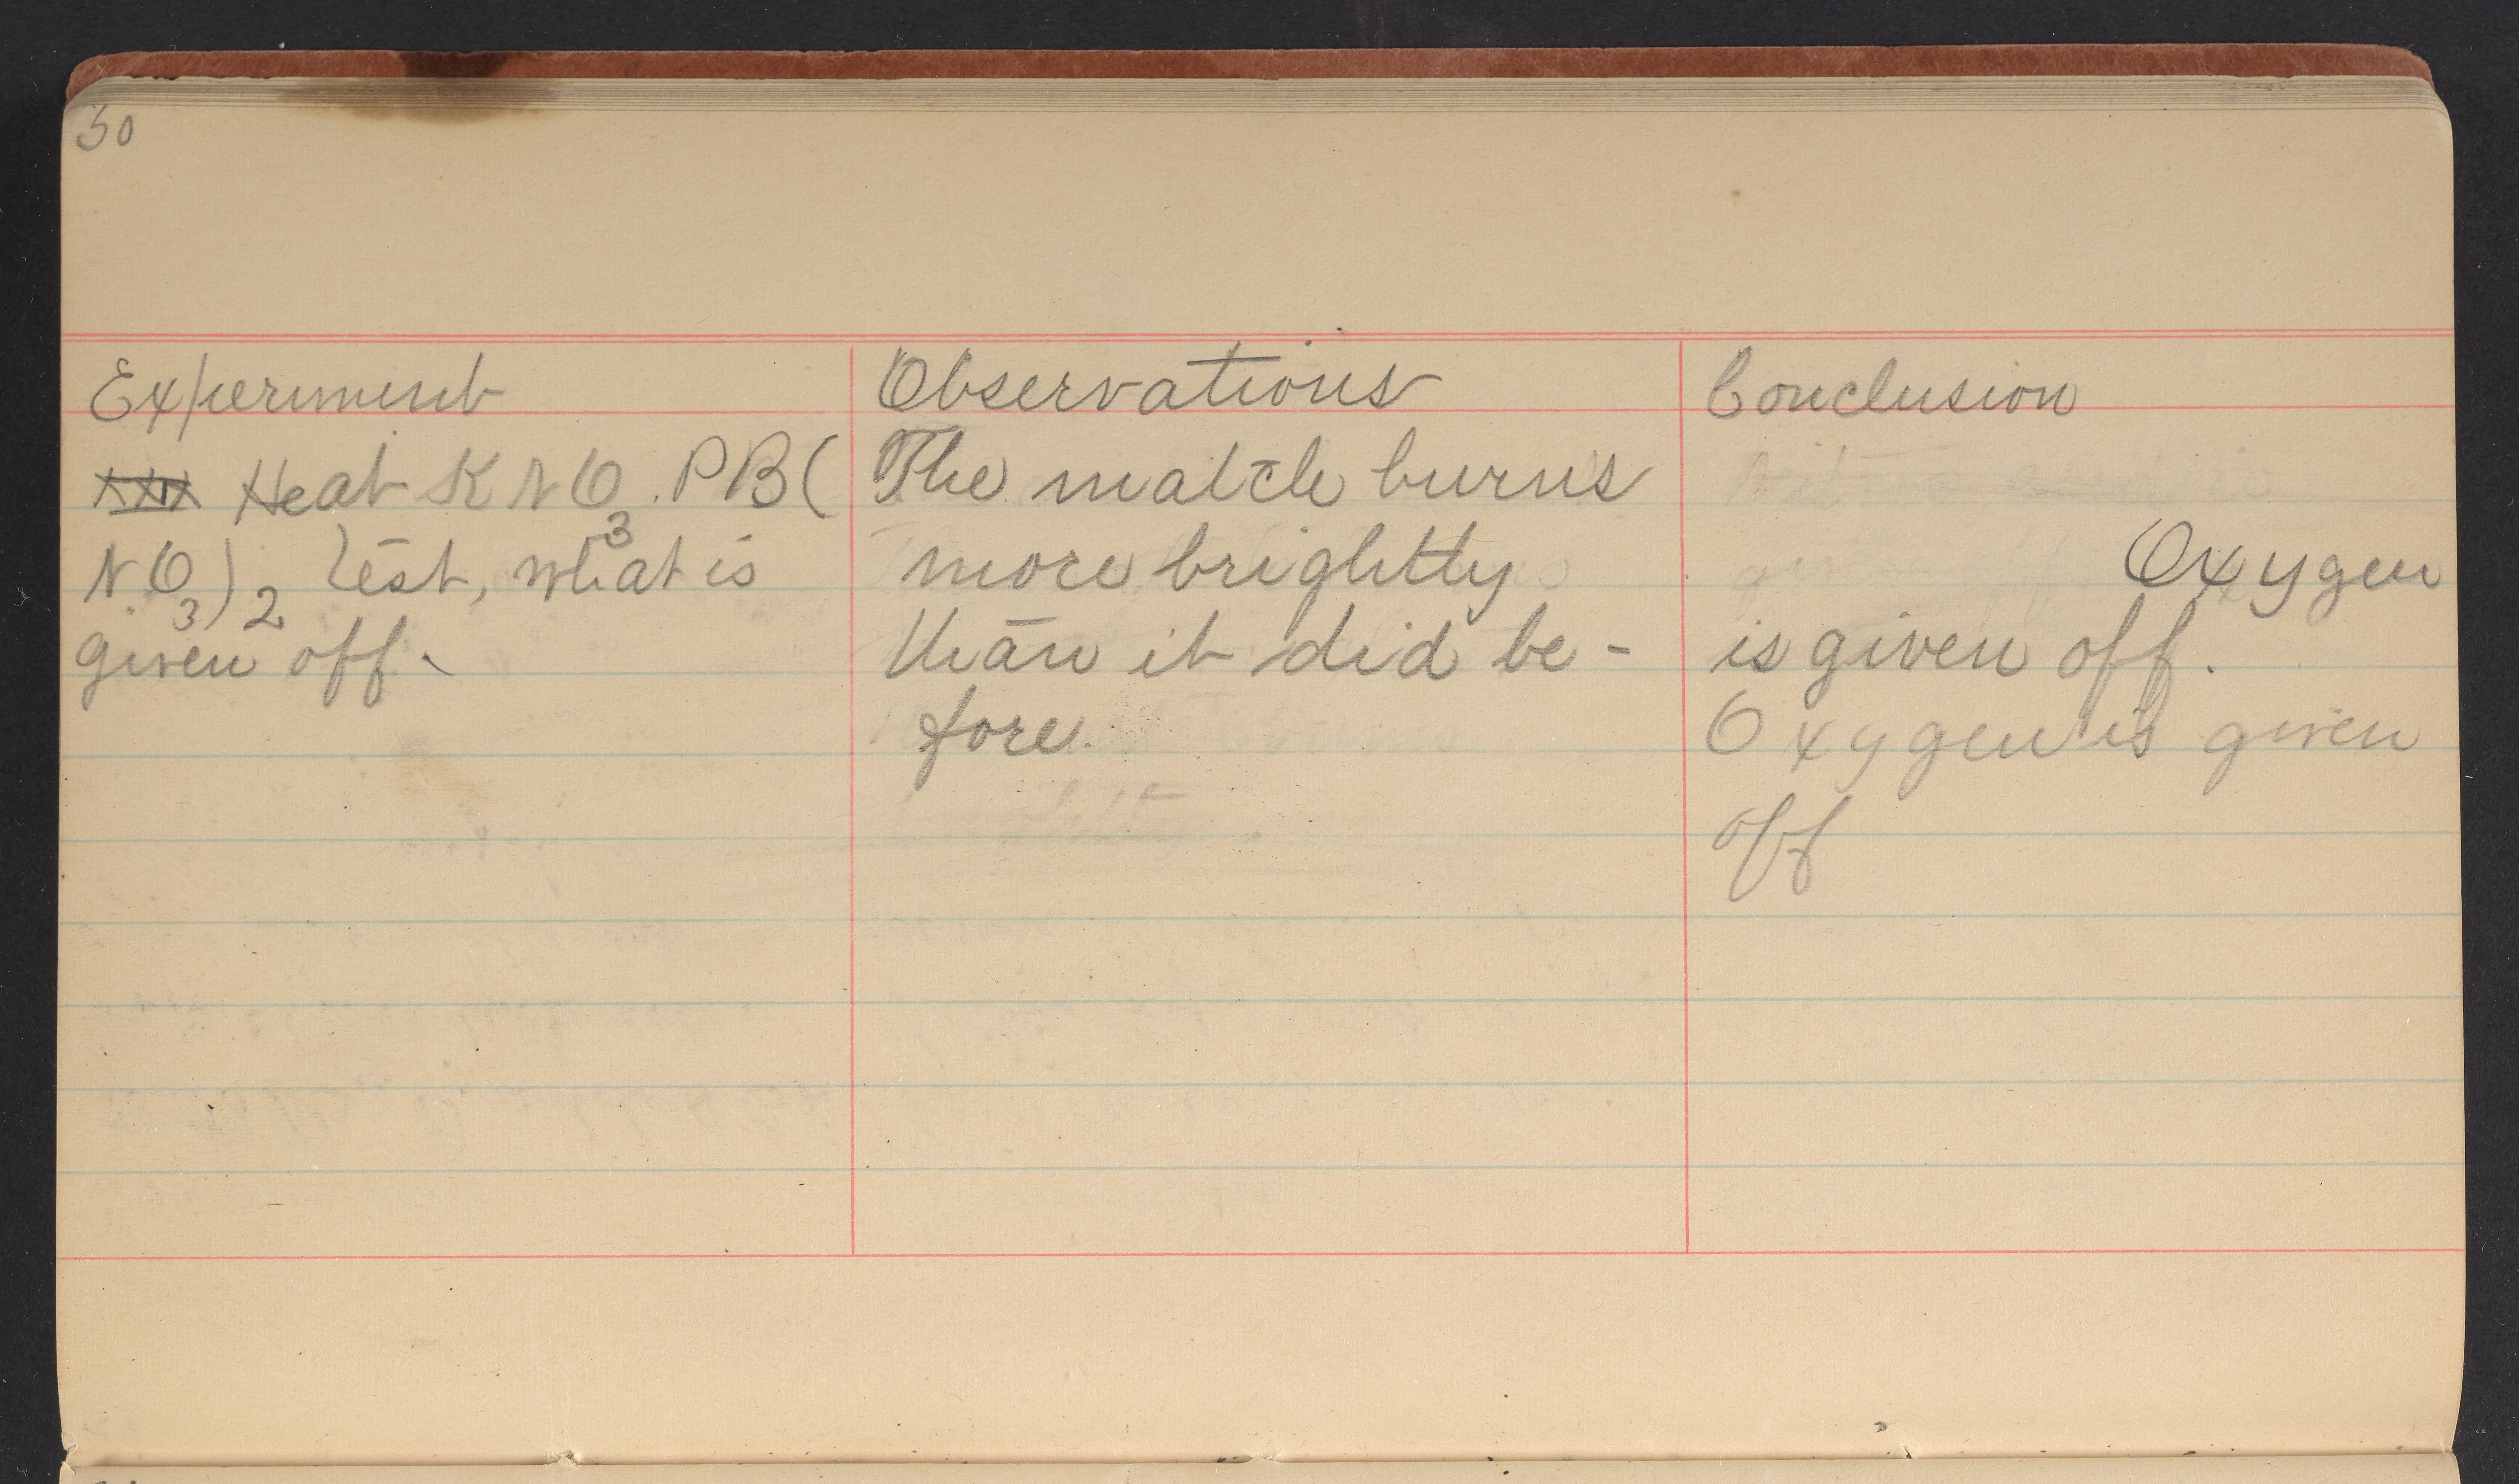 50
Experiment
Heat KNO3. PB(
NO3)2 Test, what is
given off.
Observations
The match burns
more brightly
than it did be-
fore.
Conclusion
Oxygen
is given off.
Oxygen is given
off